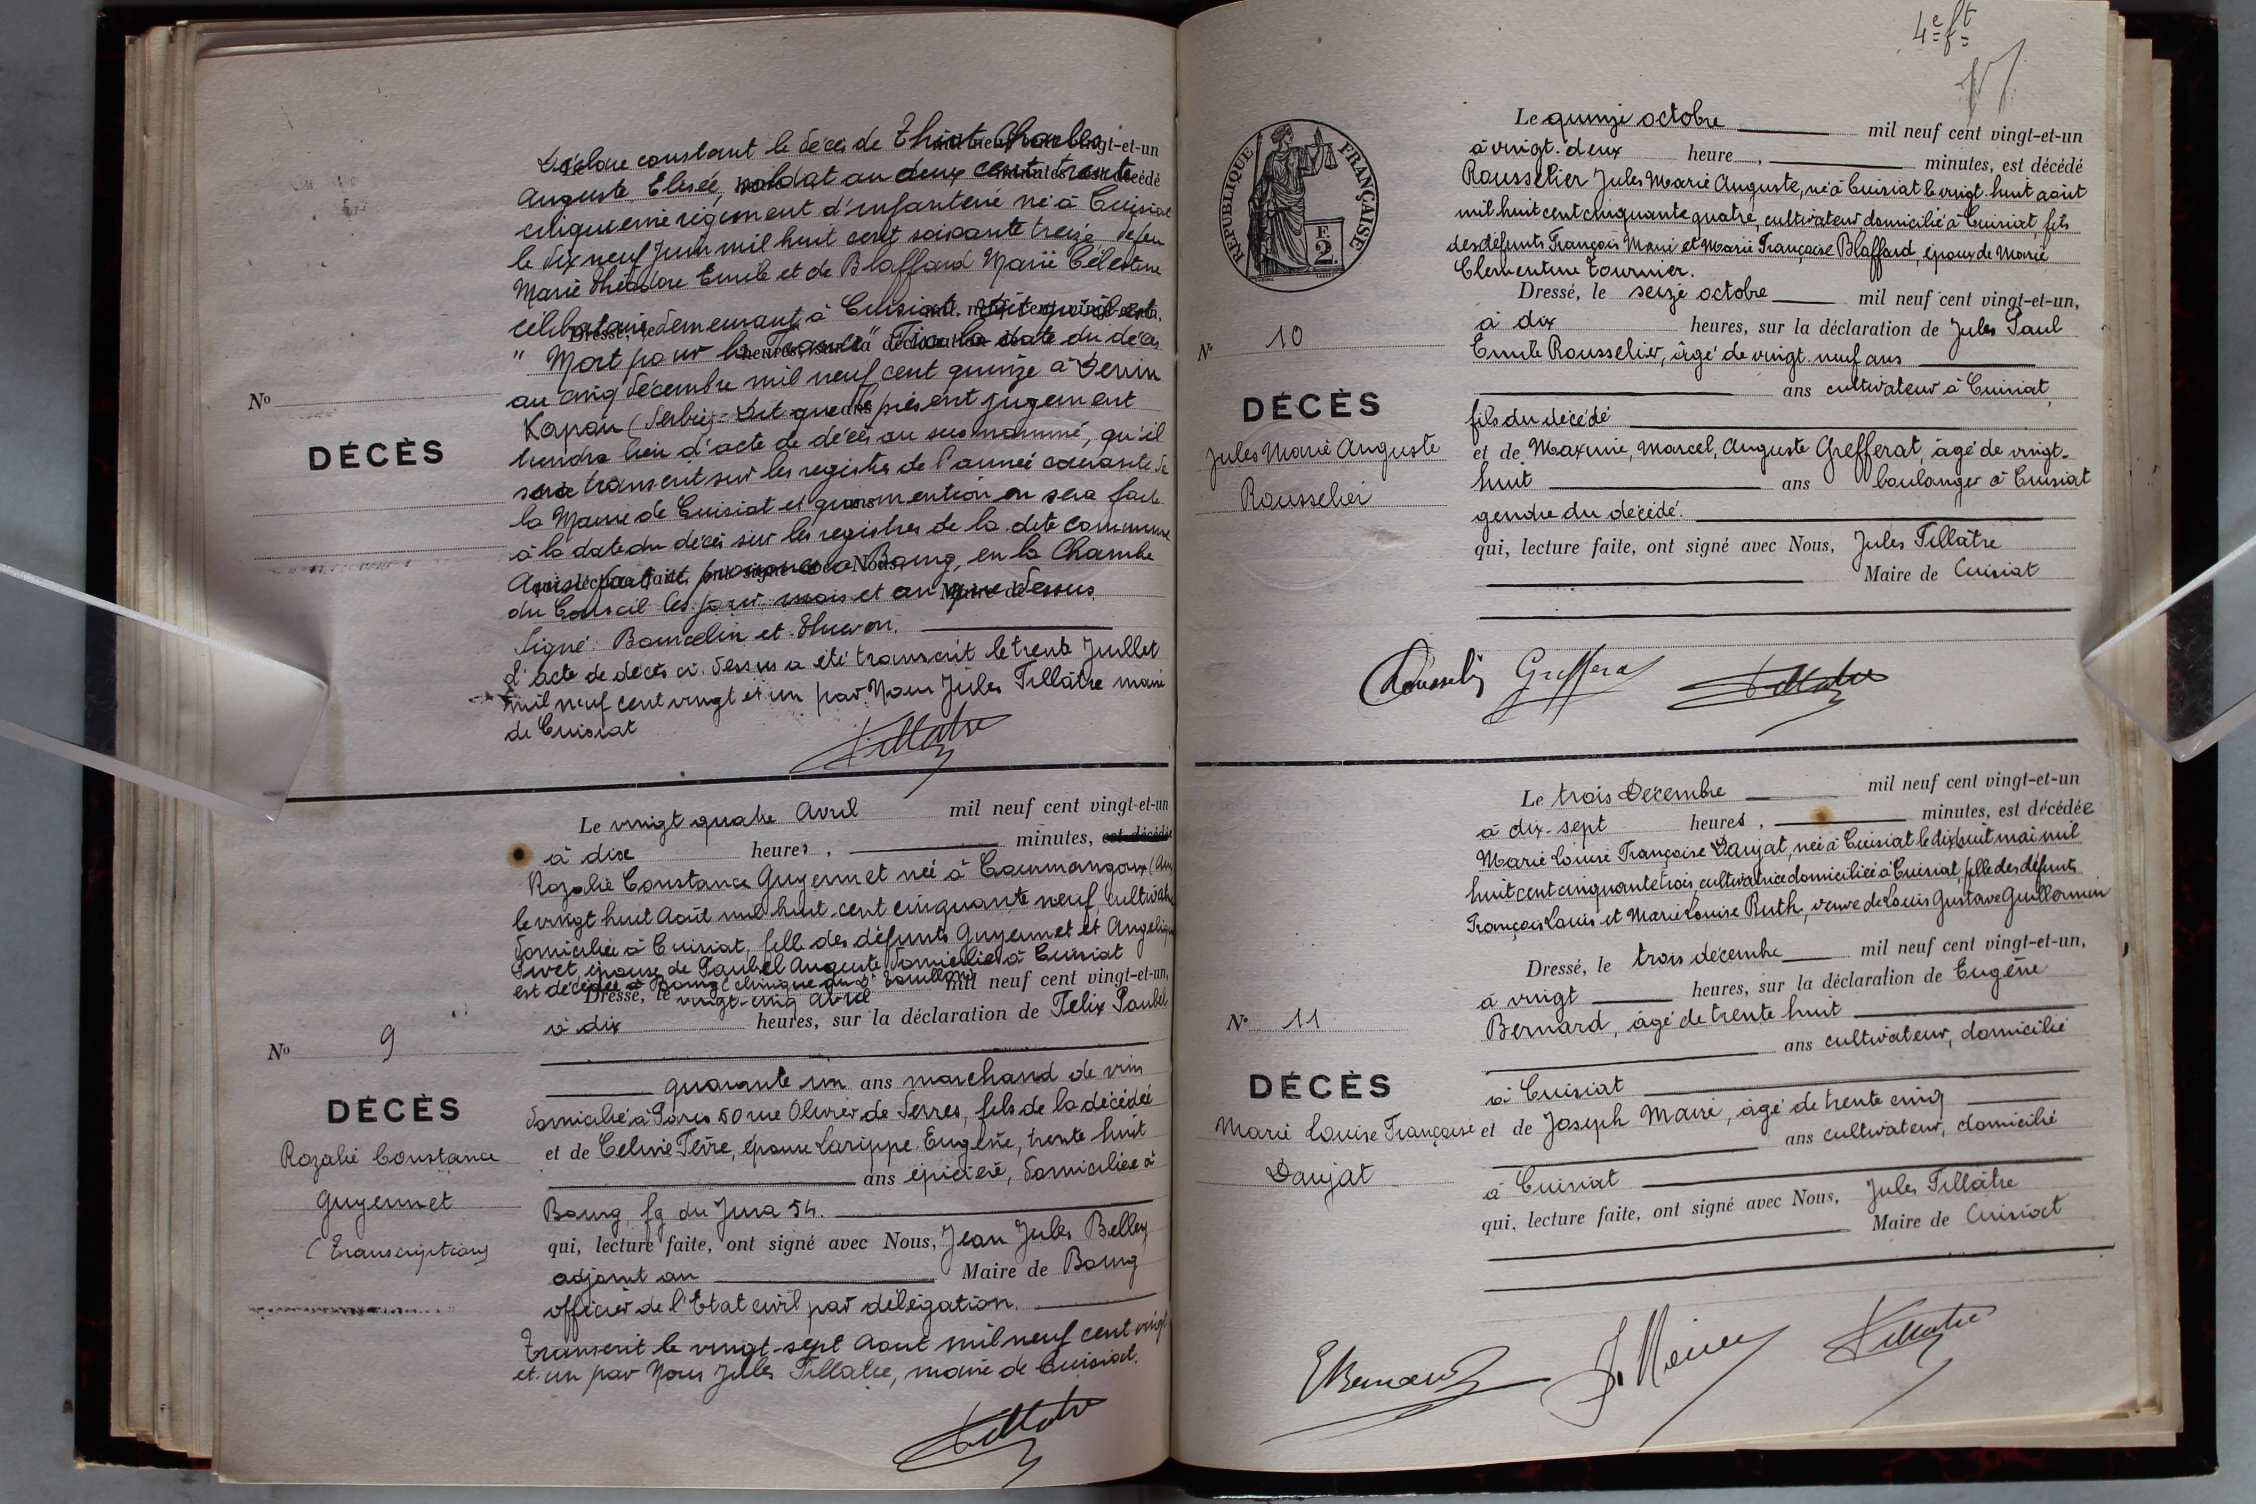 Déclare constant le décès de Thiot Charles
mil neuf cent vingt-et-un
Auguste Elisée, soldat au deux cent trente
cinquième régiment d'infanterie né à Cuisiat
le dix neuf Juin mil huit cent soixante treize de feu
Marie Théodore Emile et de Blaffard Marie Célestine
célibataire demeurant à Cuisiat. Dit qu'il est
"Mort pour la France" Fixe la date du décès
au cinq décembre mil neuf cent quinze à Demir
Kapou (Serbie). Dit que le présent jugement
tiendra lieu d'acte de décès au susnommé, qu'il
sera transcrit sur les registres de l'année courante de
la Mairie de Cuisiat et que mention en sera faite
à la date du décès sur les registres de la dite commune
Ainsi fait et prononcé à Bourg, en la Chambre
du Conseil les jour, mois et an que dessus.
Signé: Bourcelin et Thuevon.
L'acte de décès ci-dessus a été transcrit le trente Juillet
mil neuf cent vingt et un par Nous Jules Tillâtre maire
de Cuisiat
Tillatre
No
DÉCÈS
Le vingt quatre Avril mil neuf cent vingt-et-un
à dix heures, minutes, est décédé
Rozalie Constance Guyennet née à Courmangoux (Ain)
le vingt huit Août mil huit cent cinquante neuf cultivatrice
domiciliée à Cuisiat, fille des défunts Guyennet et Angélique
Sivet, épouse de Paubel Auguste domicilié à Cuisiat
est décédée à Bourg clinique du
Dressé, le vingt-cinq Avril mil neuf cent vingt-et-un,
à dix heures, sur la déclaration de Félix Paubel
quarante un ans marchand de vin
domicilié à Paris 50 rue Olivier de Serres, fils de la décédée
et de Célinie Fèvre, épouse Larippe Eugène, trente huit
ans épicière, domiciliée à
Bourg, fg du Jura 54.
qui, lecture faite, ont signé avec Nous, Jean Jules Belley
adjoint au Maire de Bourg
officier de l'Etat civil par délégation.
Transcrit le vingt-sept Aout mil neuf cent vingt
et un par Nous Jules Tillatre, maire de Cuisiat.
Tillatre
No 9
DÉCÈS
Rozalie Constance
Guyennet
(Transcription)
4e ft
RÉPUBLIQUE FRANÇAISE
F.
2.
No 10
DÉCÈS
Jules Marie Auguste
Rousselier
Le quinze octobre mil neuf cent vingt-et-un
à vingt-deux heure, minutes, est décédé
Rousselier Jules Marie Auguste, né à Cuisiat le vingt-huit août
mil huit cent cinquante quatre, cultivateur domicilié à Cuisiat, fils
des défunts François Marie et Marie Françoise Blaffard, époux de Marie
Clémentine Tournier.
Dressé, le seize octobre mil neuf cent vingt-et-un,
à dix heures, sur la déclaration de Jules Paul
Emile Rousselier, âgé de vingt-neuf ans
ans cultivateur à Cuisiat,
fils du décédé
et de Maxime, Marcel, Auguste Grefferat, âgé de vingt-
huit ans boulanger à Cuisiat
gendre du décédé.
qui, lecture faite, ont signé avec Nous, Jules Tillâtre
Maire de Cuisiat
Rousselier Grefferat Tillatre
Le trois Décembre mil neuf cent vingt-et-un
à dix-sept heures, minutes, est décédée
Marie Louise Françoise Daujat, née à Cuisiat le dix huit mai mil
huit cent cinquante trois, cultivatrice domiciliée à Cuisiat, fille des défunts
François Louis et Marie Louise Buth, veuve de Louis Gustave Guillermin
Dressé, le trois décembre mil neuf cent vingt-et-un,
à vingt heures, sur la déclaration de Eugène
Bernard, âgé de trente huit
ans cultivateur, domicilié
à Cuisiat
et de Joseph Maire, âgé de trente cinq
ans cultivateur, domicilié
à Cuisiat
qui, lecture faite, ont signé avec Nous, Jules Tillâtre
Maire de Cuisiat
EBernard J. Maire Tillatre
No 11
DÉCÈS
Marie Louise Françoise
Daujat